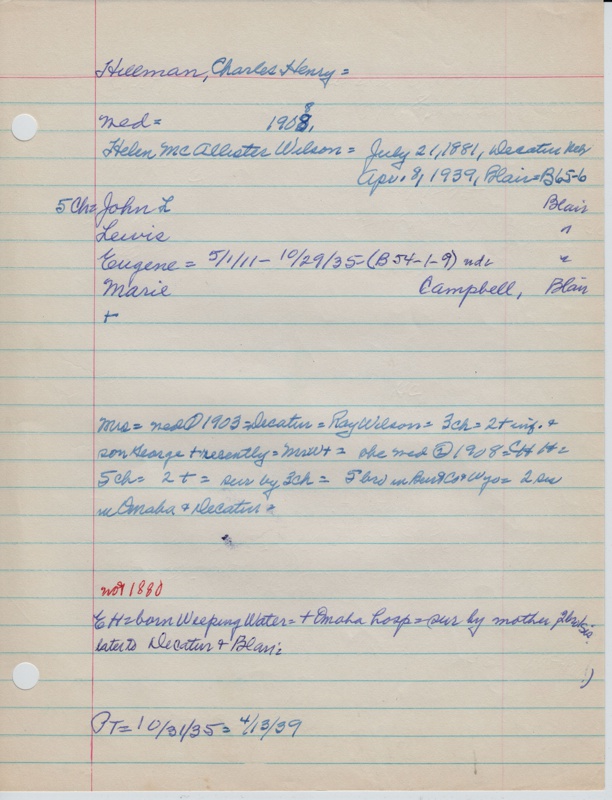 Hillman, Charles Henry =
med = 1908,
8
Helen McAllister Wilson = July 21, 1881, Decatur Neb
Apr. 8, 1939, Blair = B65-6
5 Ch = John L Blair
Lewis "
Eugene = 5/1/11 - 10/29/35 - (B 54-1-9) "
Marie Campbell, Blair
+
Mrs = med ① 1903 = Decatur = Ray Wilson = 3ch = 2 + inf. &
son George + recently = Mr W + = she med ② 1908 = CHH =
5 ch = 2 + = sur by 3ch = 5 bro in Burt Co & Wyo = 2 sis
in Omaha & Decatur
not 1880
EH = born Weeping Water = + Omaha hosp = sur by mother, 2 bro, sis.
later to Decatur & Blair.
)
PT = 10/31/35 = 4/13/39